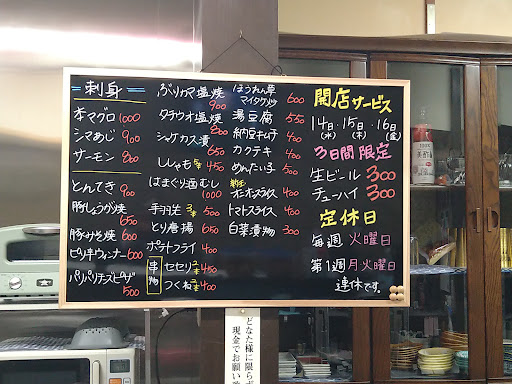 刺身
本マグロ 1000
シマあじ 900
サーモン 800
とんてき 900
豚しょうが焼 650
豚みそ焼 600
ピリ辛ウィンナー 600
パリパリチーズピザ 500
ぶりカマ塩焼 900
タチウオ塩焼 800
シャケカス漬 650
ししゃも 450
はまぐり酒むし 1000
手羽先 3本 500
とり唐揚 650
ポテトフライ 400
串物
セセリ 2本 450
つくね 2本 400
ほうれん草
マイタケソテー 600
湯豆腐 550
納豆キムチ 400
カクテキ 400
めんたい子 500
オニオンスライス 400
トマトスライス 400
白菜漬物 300
開店サービス
14日・15日・16日
(水) (木) (金)
3日間限定
生ビール 300
チューハイ 300
定休日
毎週 火曜日
第1週 月火曜日
連休です。
どなた様に限らず
現金でお願い